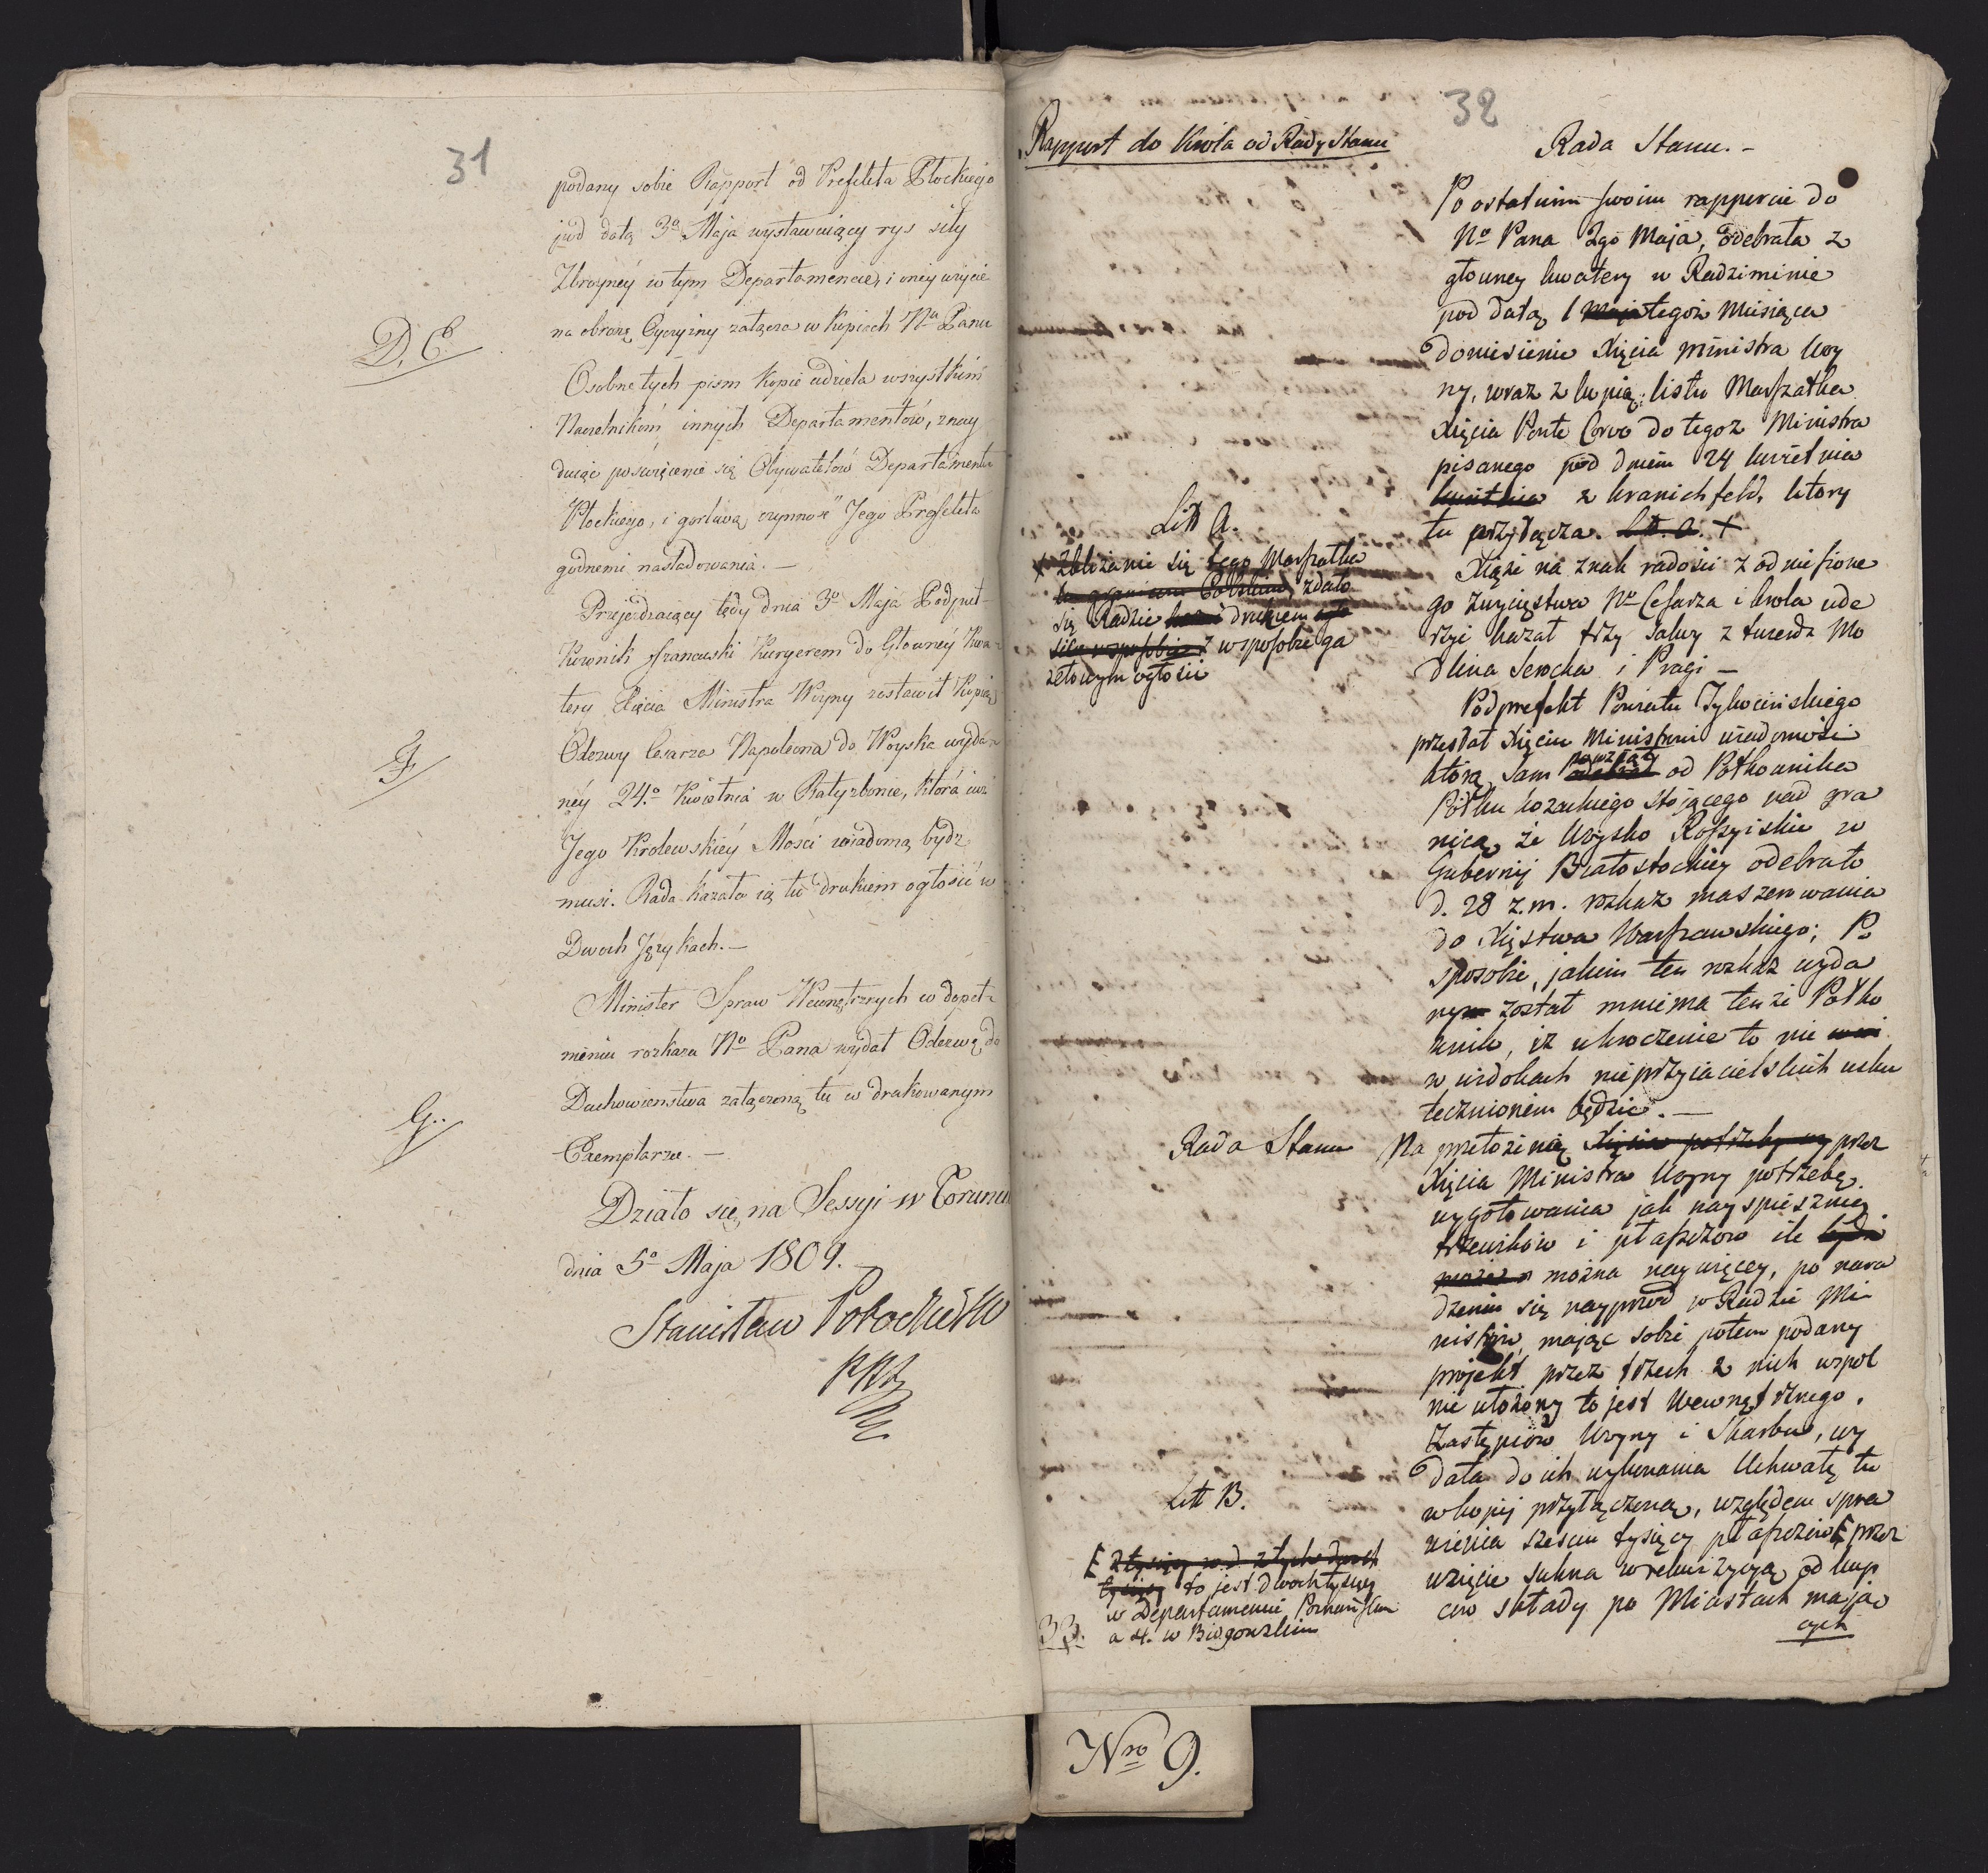 31
podany sobie Rapport od Prefekta Płockiego
pod datą 3º Maja wystawuiący rys siły
Zbroyney w tym Departamencie, i oney użycie
na obronę Oyczyzny załącza w kopiach Nu Panu
D. E.
Osobne tych pism kopie udziela wszystkim
Naczelnikom innych Departamentów, znay
duiąc poświęcenie się Obywatelów Departamentu
Płockiego, i gorliwą czynność Jego Prefekta
godnemi naśladowania. —
Przejeżdzaiący tędy dnia 3º Maja Podpuł-
kownik francuski Kuryerem do Głowney Kwa-
tery Xięcia Ministra Woyny zostawił Kopią
F
Odezwy Cesarza Napoleona do Woyska wyda-
ney 24º Kwietnia w Ratyzbonie, która iuż
Jego Krolewskiey Mości wiadomą bydź
musi. Rada kazała ią tu drukiem ogłosić w
Dwoch Językach. —
Minister Spraw Wewnętrznych w dopeł-
nieniu rozkazu No Pana wydał Odezwę do
G..
Duchowieństwa załączoną tu w drukowanym
Exemplarzu. —
Działo się na Sessyi w Toruniu
dnia 5º Maja 1809. —
Stanisław Potocki
32
Rapport do Krola od Rady Stanu
Rada Stanu. -
Po ostatnim swoim rapporcie do
No Pana 2go Maja, odebrała z
głowney kwatery w Radziminie
pod datą 1 Maja tegoż Miesiąca
doniesienie Xięcia ministra Woy
ny, wraz z kopią listu Marszałka
Xięcia Ponte Corvo do tegoż Ministra
pisanego pod dniem 24 kwietnia
kwietnia z Kranichfeld, ktory
tu przyłącza. Lit. a. +
Litt A.
+ Zbliżanie się tego Marszałka
zdało
się Radzie drukiem
w sposobie ga
zetowym ogłosić
Xiąże na znak radości z odniesione
go zwycięstwa No Cesarza i krola ude
rzyć kazał trzy salwy z twierdz Mo
dlina Serocka i Pragi —
Podprefekt Powiatu Tykocińskiego
przesłał Xięciu Ministrowi wiadomość
którą sam powziął odebrał od Półkownika
Półku kozackiego stojącego nad gra
nicą że Woysko Rossyiskie w
Gubernij Białostockiey odebrało
d. 28 z.m. rozkaz maszerowania
do Xięstwa Warszawskiego; Po
sposobie, jakim ten rozkaz wyda
nym został mniema tenże Półko
wnik, iż wkroczenie to nie
w widokach nieprzyiacielskich usku
tecznionem będzie. —
Rada Stanu
Na przełożenią Xięcia potrzebę wy przez
Xięcia Ministra Woyny potrzebę
wygotowania jak nayspieszniey
trzewików i płaszczow ile
można naywięcey, po nara
dzeniu się nayprzod w Radzie Mi
nistrów, mając sobie potem podany
projekt przez trzech z nich wspol
nie ułożony to jest Wewnętrznego,
Zastępców Woyny i Skarbu, wy
dała do ich wykonania Uchwałę tu
Litt B.
w kopij przyłączoną, względem spra
wienia sześciu tysięcy płaszczów [ przez
wzięcie sukna w rekwizycyą od kup
ców składy po Miastach mają
cych
[ z tych dwoch
tysięcy to jest dwoch tysięcy
w Departamencie Poznańskim
a 4. w Bidgowskim
33.
Nro 9.